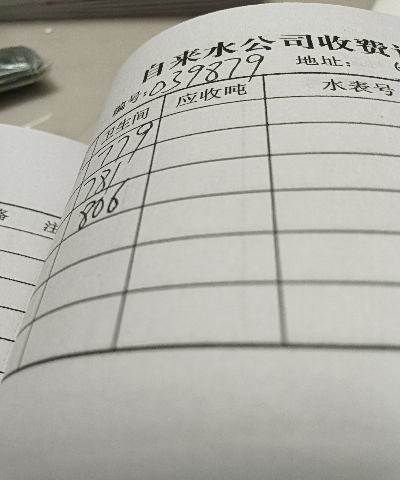 自来水公司收费
编号:039879 地址:
卫生间 应收吨 水表号
779
781
806
备 注